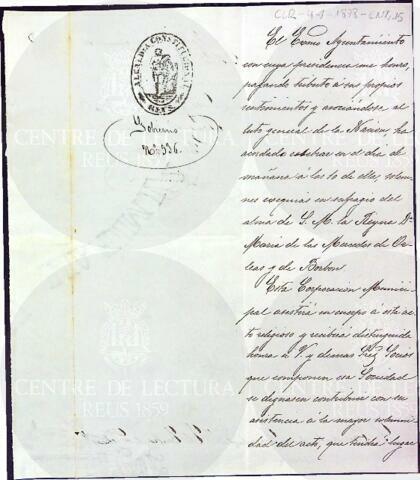 ALCALDIA CONSTITUCIONAL
REUS
Gobierno
Nº 936.
El Excmo Ayuntamiento
con cuya presidencia me honro,
pagando tributo á sus propios
sentimientos y asociándose al
luto general de la Nacion, ha
acordado celebrar en el dia de
mañana á las 10 de ella, solem-
nes exequias en sufragio del
alma de S. M. la Reyna Dª
Maria de las Mercedes de Or-
leas y de Borbon
Esta Corporacion Munici-
pal asistirá en cuerpo á este ac-
to religioso y recibirá distinguida
honra si V. y demas Sres Socios
que componen esa Sociedad
se dignasen contribuir con su
asistencia á la mayor solemni-
dad del acto, que tendrá lugar
CENTRE DE LECTURA
REUS 1859
CENTRE DE LECTURA
REUS 1859